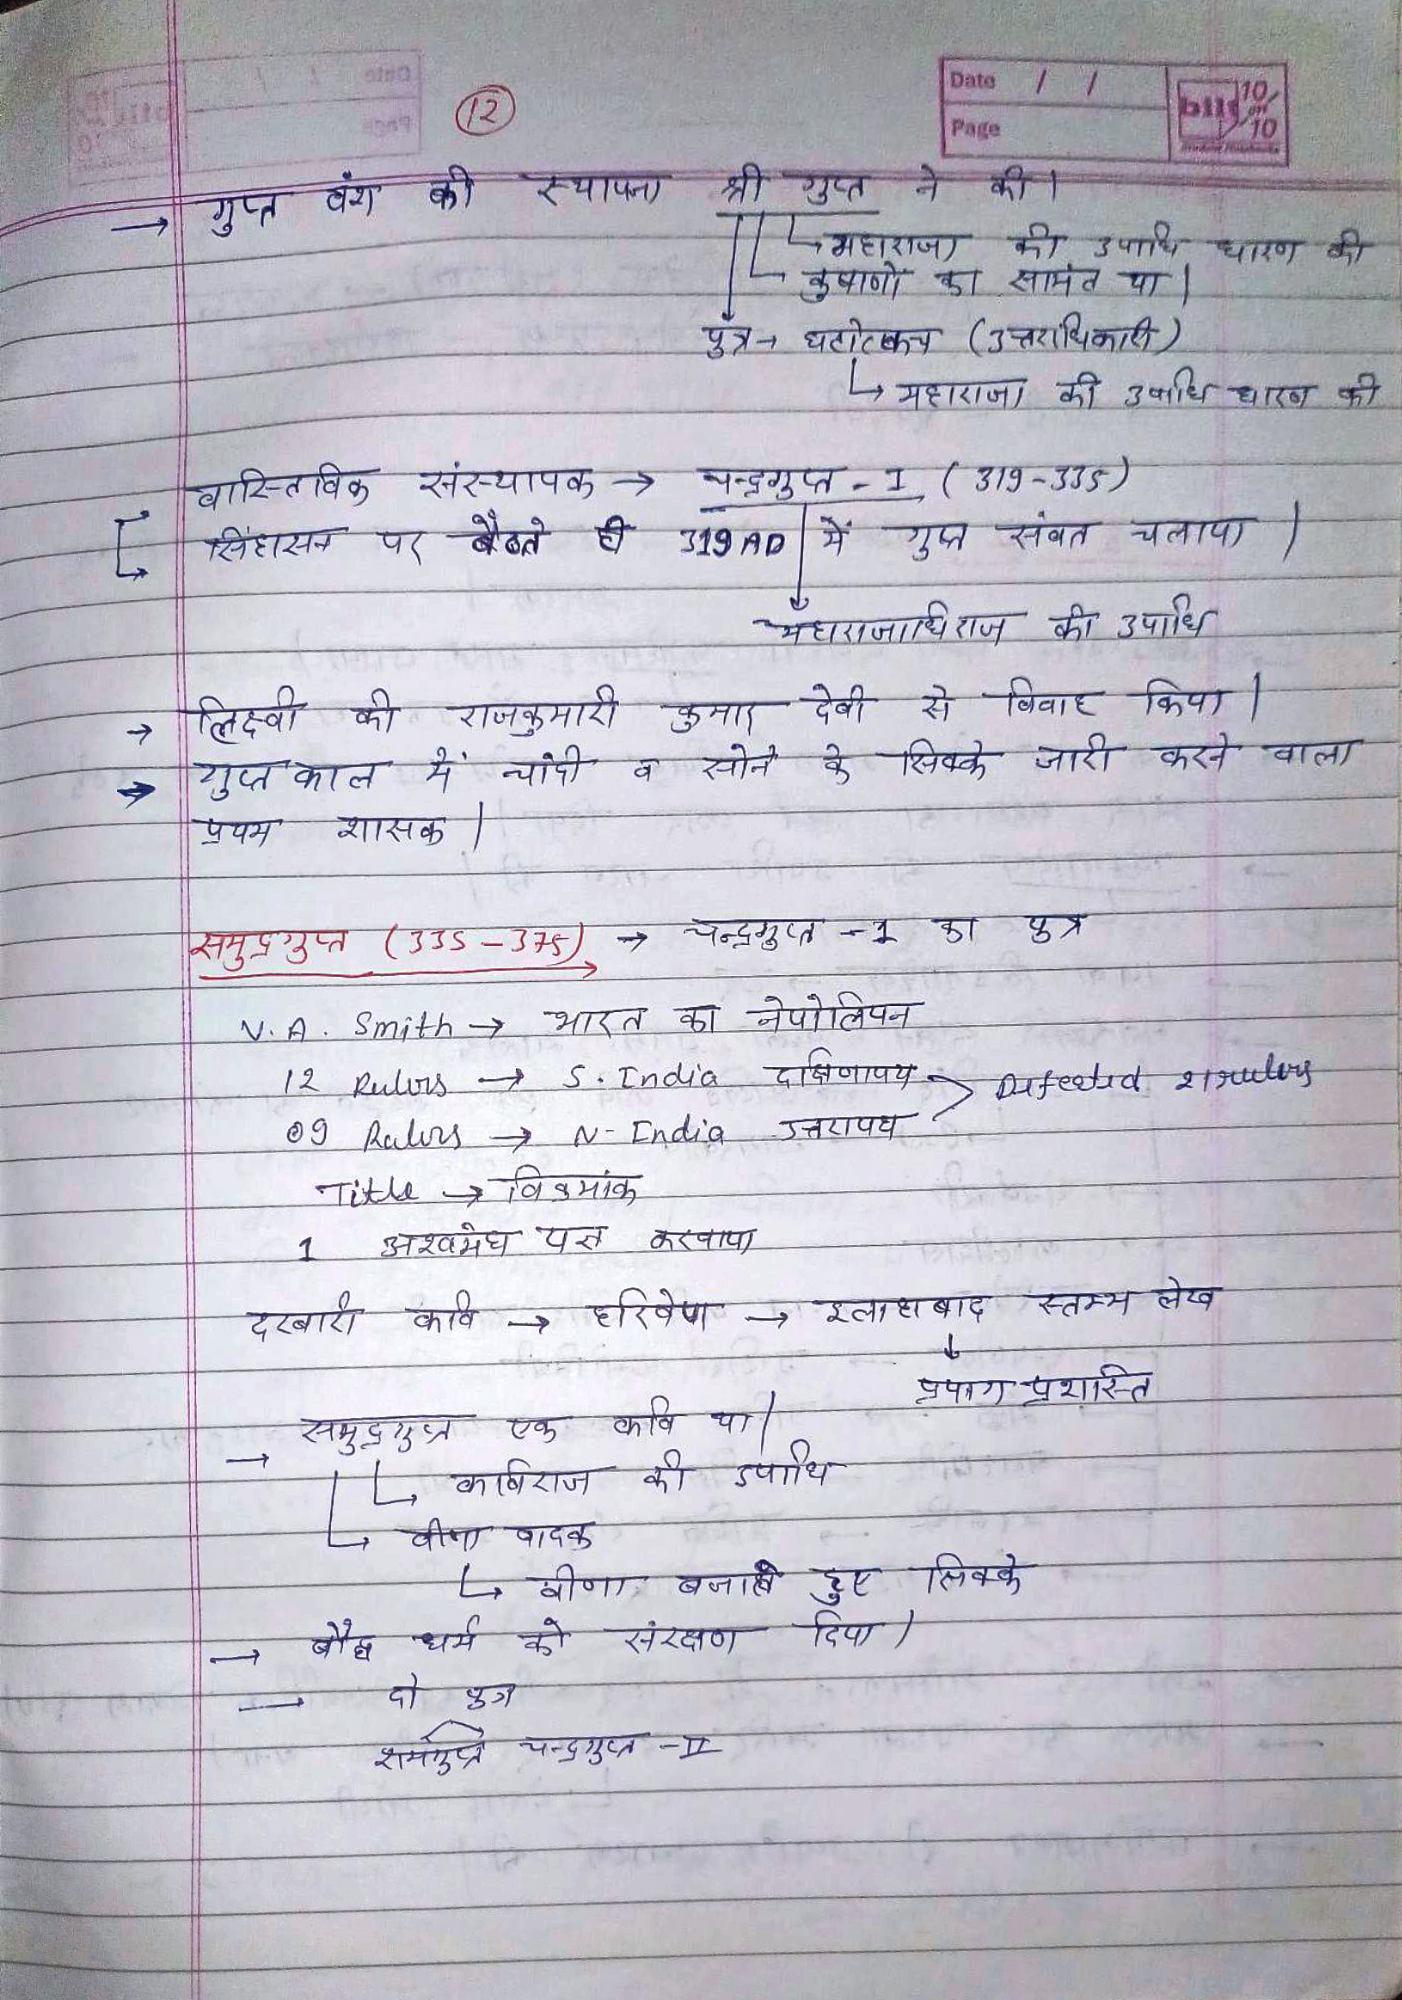 12
Date / /
Page
→ गुप्त वंश की स्थापना श्री गुप्त ने की।
↳ महाराजा की उपाधि धारण की
↳ कुषाणों का सामंत था।
पुत्र → घटोत्कच (उत्तराधिकारी)
↳ महाराजा की उपाधि धारण की
वास्तिविक संस्थापक → चन्द्रगुप्त - I (319-335)
सिंहासन पर बैठते ही 319 AD में गुप्त संवत चलाया।
महाराजाधिराज की उपाधि
→ लिक्ष्वी की राजकुमारी कुमार देवी से विवाह किया।
→ गुप्तकाल में चांदी व सोने के सिक्के जारी करने वाला
प्रथम शासक।
समुद्रगुप्त (335-375) → चन्द्रगुप्त -1 का पुत्र
V.A. Smith → भारत का नेपोलियन
12 Rulers → S. India दक्षिणापथ > Defeated 21 rulers
09 Rulers → N-India उत्तरापथ
Title → विक्रमांक
1 अश्वमेघ यज्ञ करवाया
दरबारी कवि → हरिषेण → इलाहाबाद स्तम्भ लेख
↓
प्रयाग प्रशास्ति
→ समुद्रगुप्त एक कवि था।
↳ कविराज की उपाधि
↳ वीणा वादक
↳ वीणा बजाते हुए सिक्के
→ बौद्ध धर्म को संरक्षण दिया।
→ दो पुत्र
चन्द्रगुप्त -II